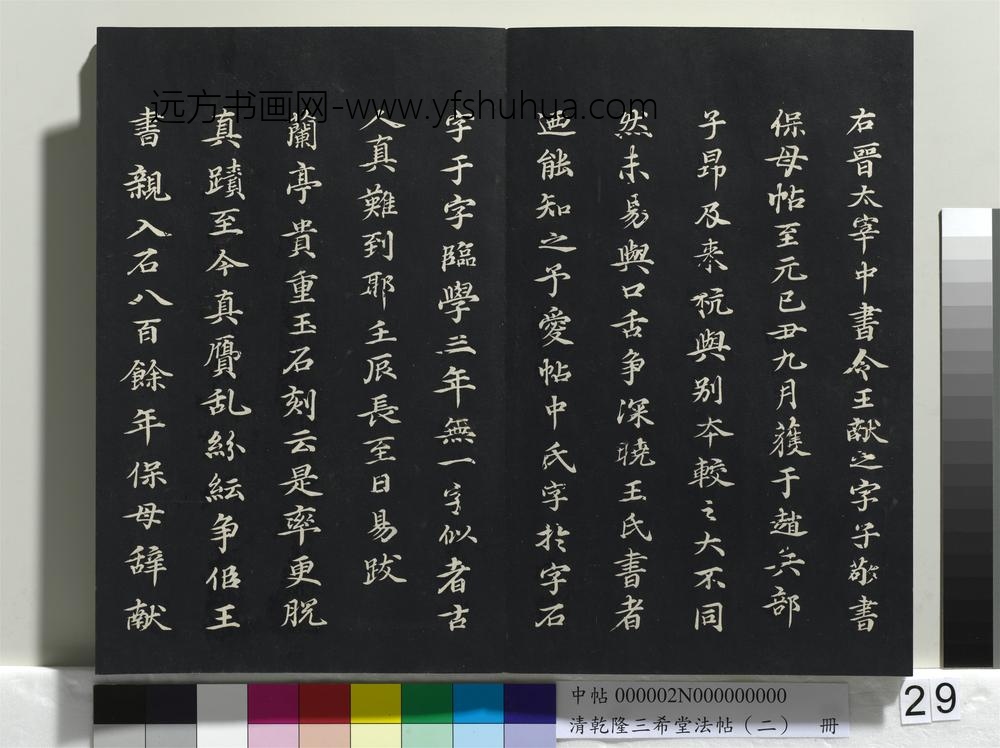 远方书画网-www.yfshuhua.com
右晉太宰中書令王献之字子敬書
保母帖至元己丑九月獲于趙兵部
子昂及来杭與别本較之大不同
然未易與口舌争深曉王氏書者
廼能知之予愛帖中氏字於字石
字于字臨學三年無一字似者古
人真難到耶壬辰長至日易跋
蘭亭貴重玉石刻云是率更脱
真蹟至今真贋乱紛紜争侣王
書親入石八百餘年保母辞献
中帖 000002N000000000
清乾隆三希堂法帖(二) 册
29